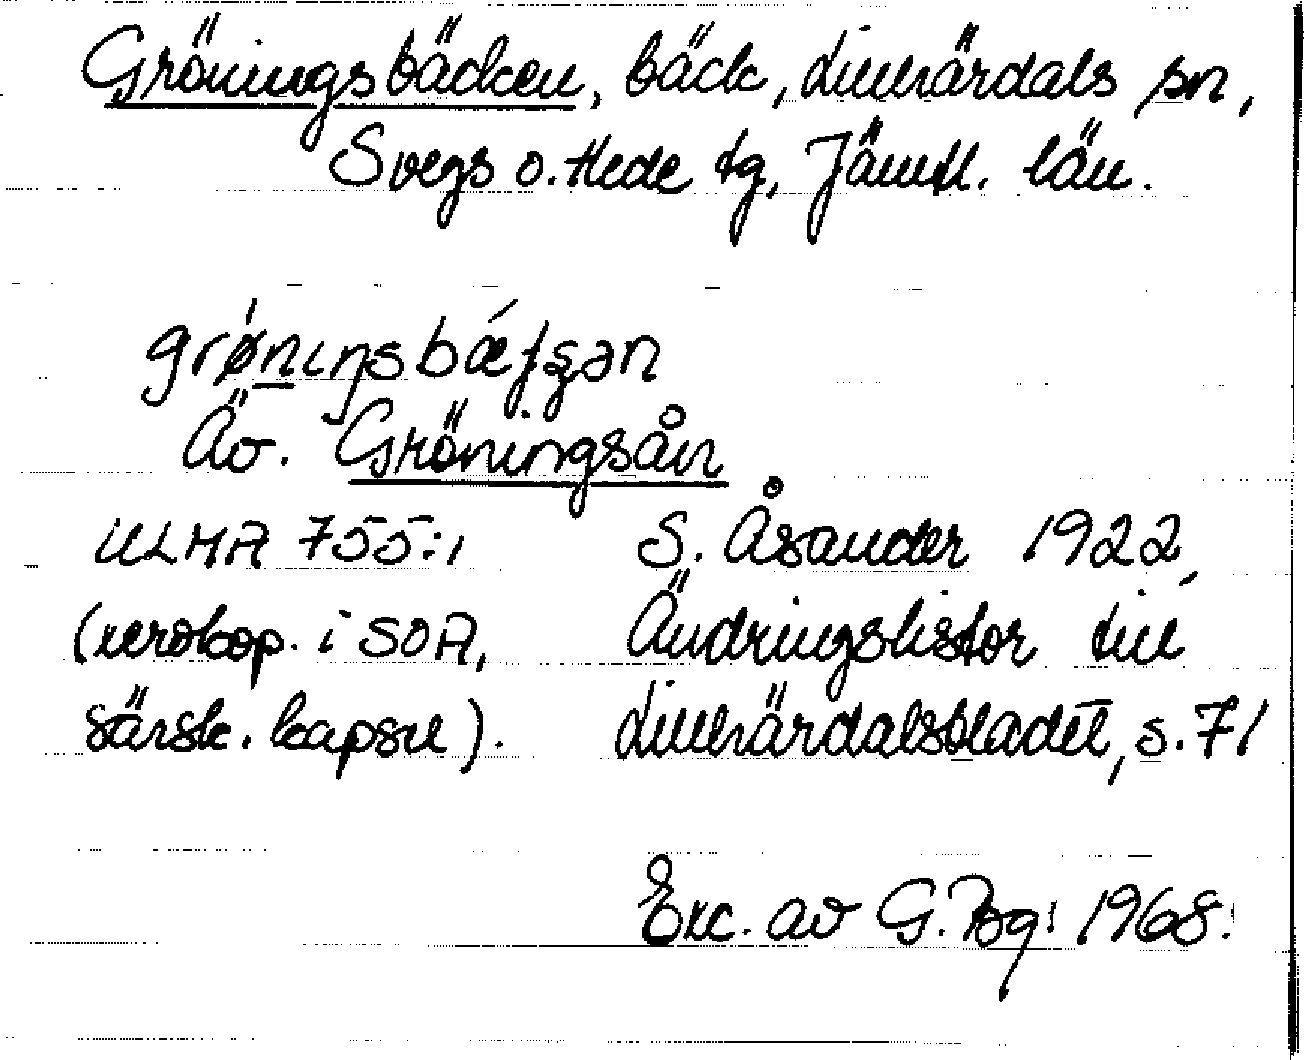 Gröningsbäcken, bäck, Lillhärdals sn,
Svegs o. Hede tg, Jämtl. län.
grǿnıŋsbǽʃʂən
Äv. Gröningsån
ULMA 755:1 S. Åsander 1922,
(xerokop. i SOA, Ändringslistor till
särsk. kapsel). Lillhärdalsbladet, s. 71
Exc. av G. Bg. 1968.